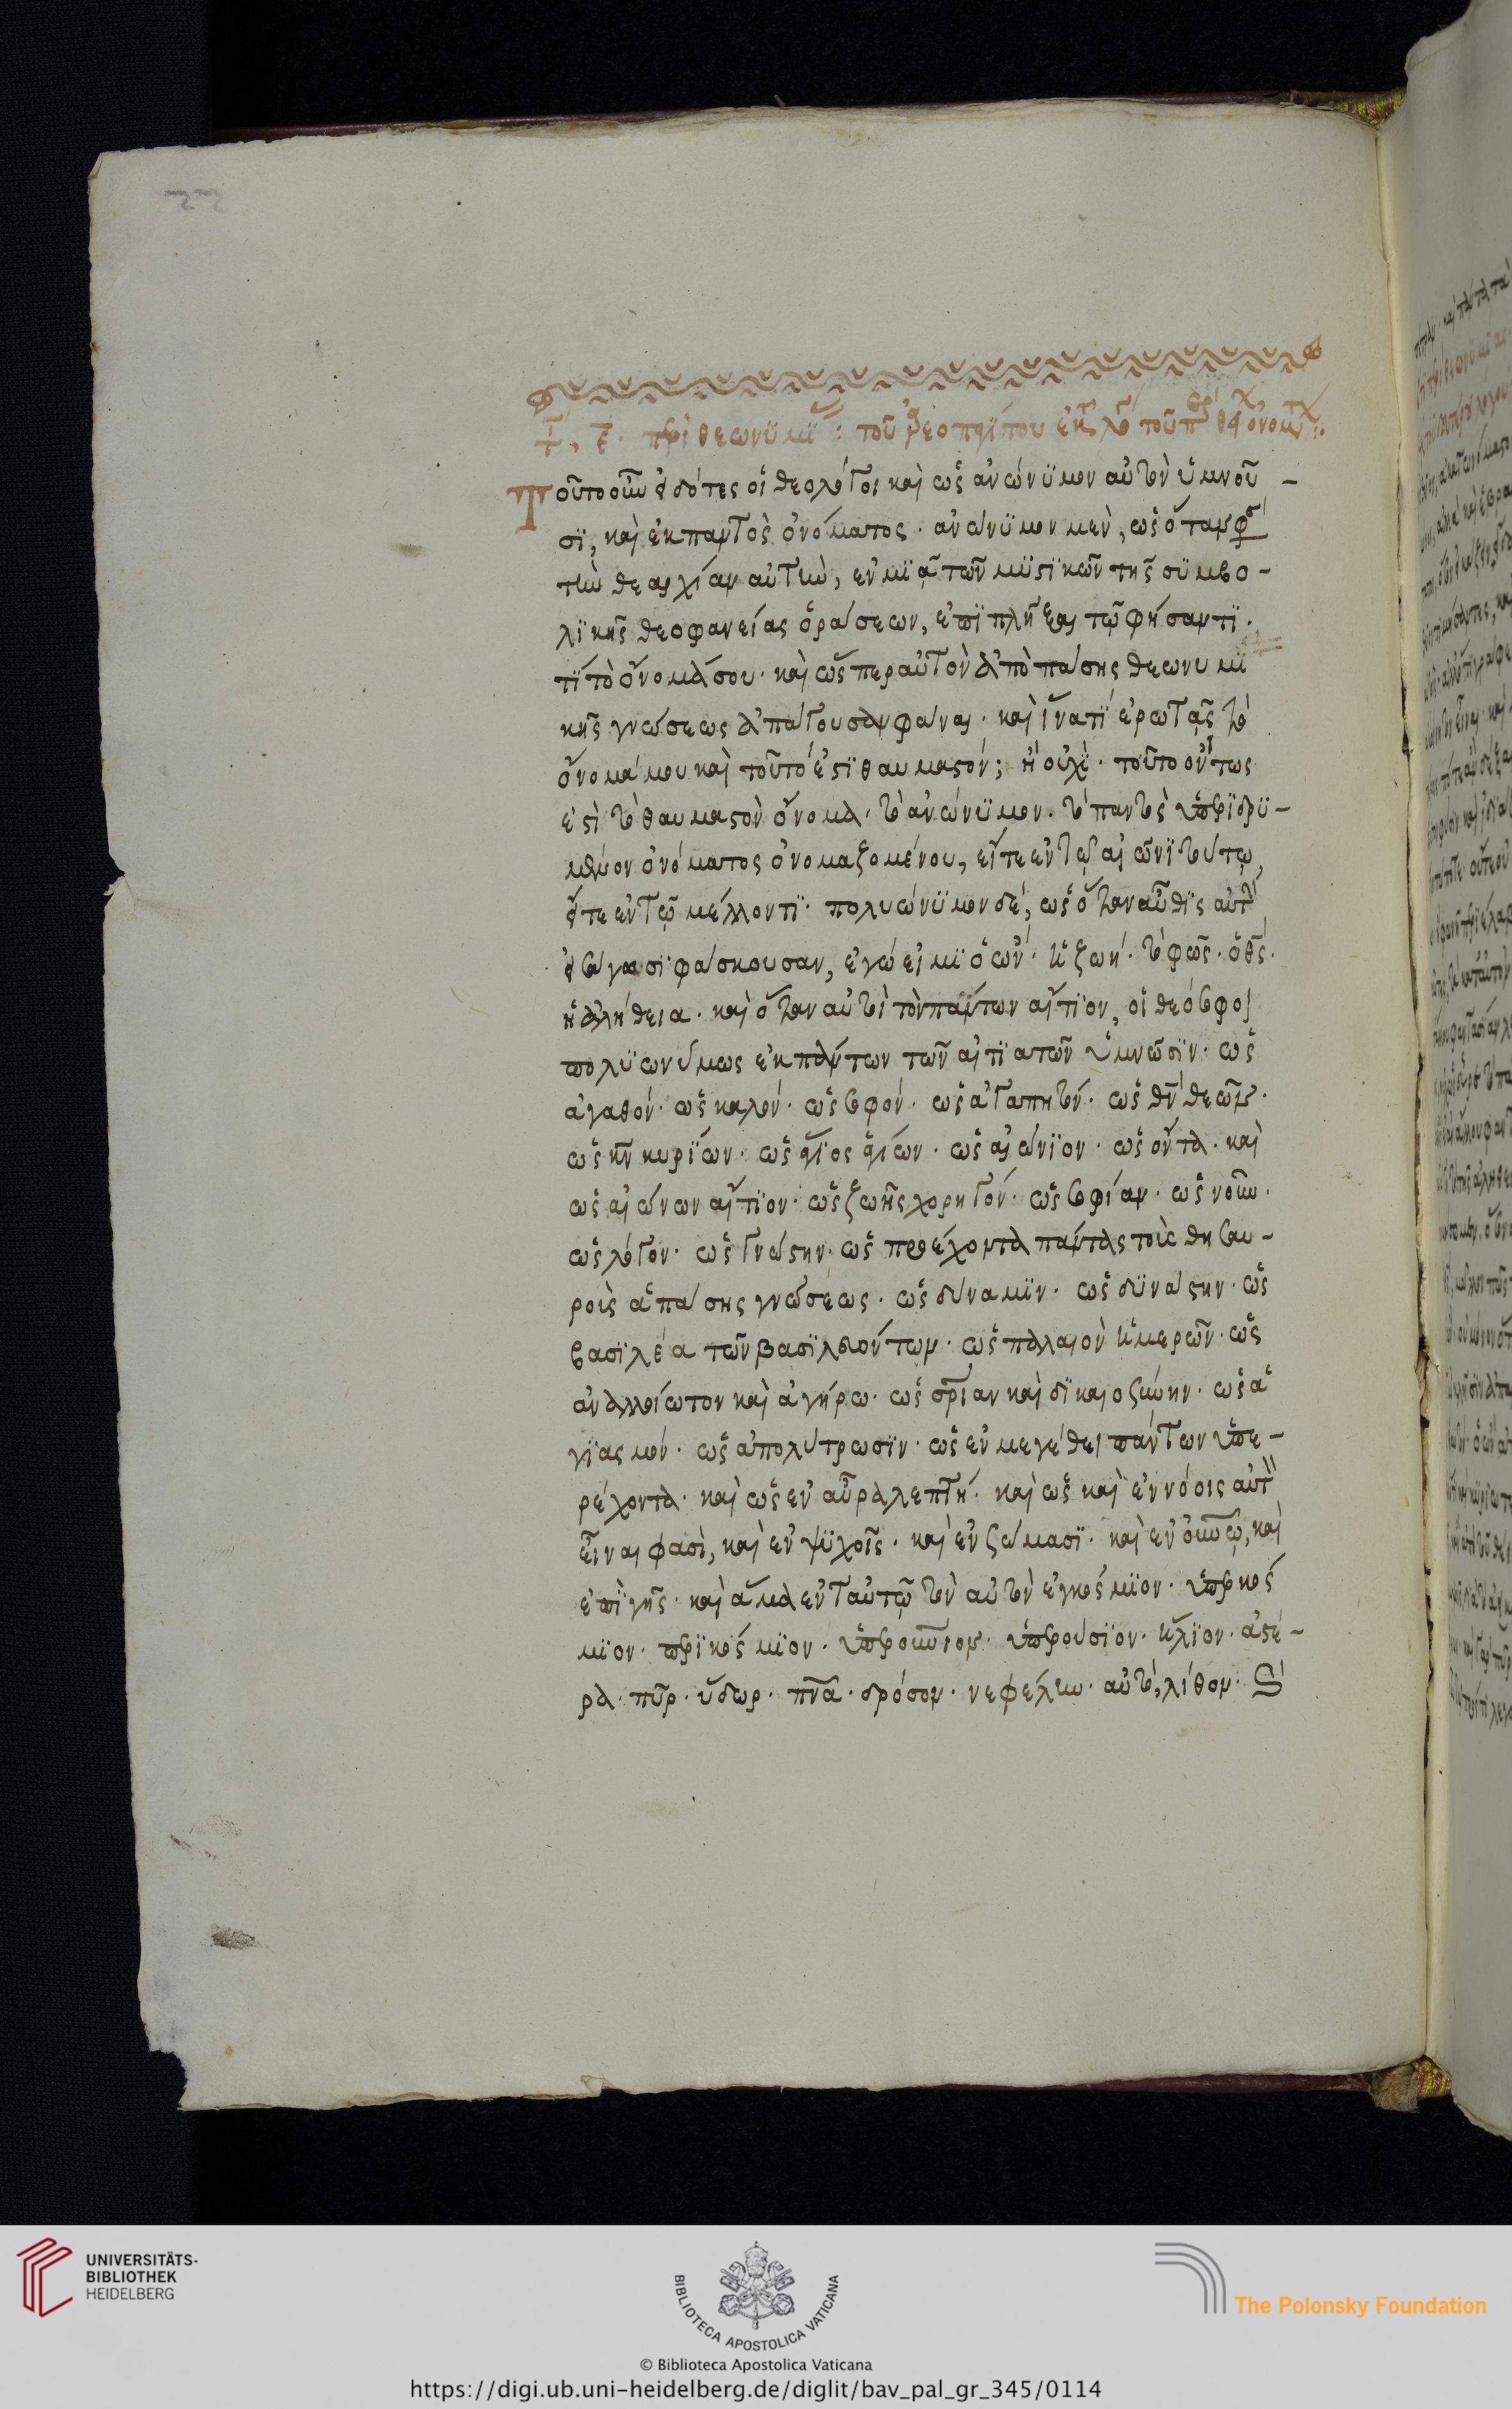 περὶ θεωνυμί : τοῦ ἀρεοπαγίτου ἐκ τοῦ
Τοῦτο οὖν εἰδότες οἱ θεολόγοι καὶ ὡς ἀνώνυμον αὐτὸν ὑμνοῦ-
σι, καὶ ἐκ παντὸς ὀνόματος. ἀνώνυμον μὲν, ὡς ὅταν φ
τὴν θεαρχίαν αὐτὴν, ἐν μιᾷ τῶν μυστικῶν τῆς συμβο-
λικῆς θεοφανείας ὁράσεων, ἐπιπλῆξαι τῷ φήσαντι.
τί τὸ ὄνομά σου. καὶ ὥσπερ αὐτὸν ἀπὸ πάσης θεωνυμι
κῆς γνώσεως ἀπάγουσαν φάναι. καὶ ἵνα τί ἐρωτᾷς τὸ
ὄνομά μου καὶ τοῦτό ἐστι θαυμαστόν; ἢ οὐχὶ. τοῦτο ὄντως
ἐστὶ τὸ θαυμαστὸν ὄνομα. τὸ ἀνώνυμον. τὸ παντὸς ὑπεριδρυ-
μένον ὀνόματος ὀνομαζομένου, εἴτε ἐν τῷ αἰῶνι τούτῳ,
εἴτε ἐν τῷ μέλλοντι. πολυώνυμον δέ, ὡς ὅταν αὖθις αὐτ
εἰσάγωσι φάσκουσαν, ἐγώ εἰμι ὁ ὤν. ἡ ζωή. τὸ φῶς. ὁ θς.
ἡ ἀλήθεια. καὶ ὅταν αὐτοὶ τὸν πάντων αἴτιον, οἱ θεόσοφοι
πολυωνύμως ἐκ πάντων τῶν αἰτιατῶν ὑμνῶσιν. ὡς
ἀγαθόν. ὡς καλόν. ὡς σοφόν. ὡς ἀγαπητόν. ὡς θν θεῶν.
ὡς κν κυρίων. ὡς ἅγιος ἁγίων. ὡς αἰώνιον. ὡς ὄντα. καὶ
ὡς αἰώνων αἴτιον. ὡς ζωῆς χορηγόν. ὡς σοφίαν. ὡς νοῦν.
ὡς λόγον. ὡς γνώστην. ὡς προέχοντα πάντας τοὺς θησαυ-
ροὺς ἁπάσης γνώσεως. ὡς δύναμιν. ὡς δυνάστην. ὡς
βασιλέα τῶν βασιλευόντων. ὡς παλαιὸν ἡμερῶν. ὡς
ἀναλλοίωτον καὶ ἀγήρω. ὡς σρίαν καὶ δικαιοσύνην. ὡς ἁ
γιασμόν. ὡς ἀπολύτρωσιν. ὡς ἐν μεγέθει πάντων ὑπε-
ρέχοντα. καὶ ὡς ἐν αὔρᾳ λεπτῇ. καὶ ὡς καὶ ἐν νόοις αὐτ
εἶναί φασὶ, καὶ ἐν ψυχοῖς. καὶ ἐν σώμασι. καὶ ἐν οὐνῷ, καὶ
ἐπὶ γῆς. καὶ ἅμα ἐν ταὐτῷ τὸν αὐτὸν ἐγκόσμιον. ὑπερκόσ
μιον. περικόσμιον. ὑπερουνιον. ὑπερούσιον. ἥλιον. ἀστέ-
ρα. πῦρ. ὕδωρ. πνα. δρόσον. νεφέλην. αὐτό, λίθον.
UNIVERSITÄTS-
BIBLIOTHEK
HEIDELBERG
BIBLIOTECA APOSTOLICA VATICANA
The Polonsky Foundation
© Biblioteca Apostolica Vaticana
https://digi.ub.uni-heidelberg.de/diglit/bav_pal_gr_345/0114